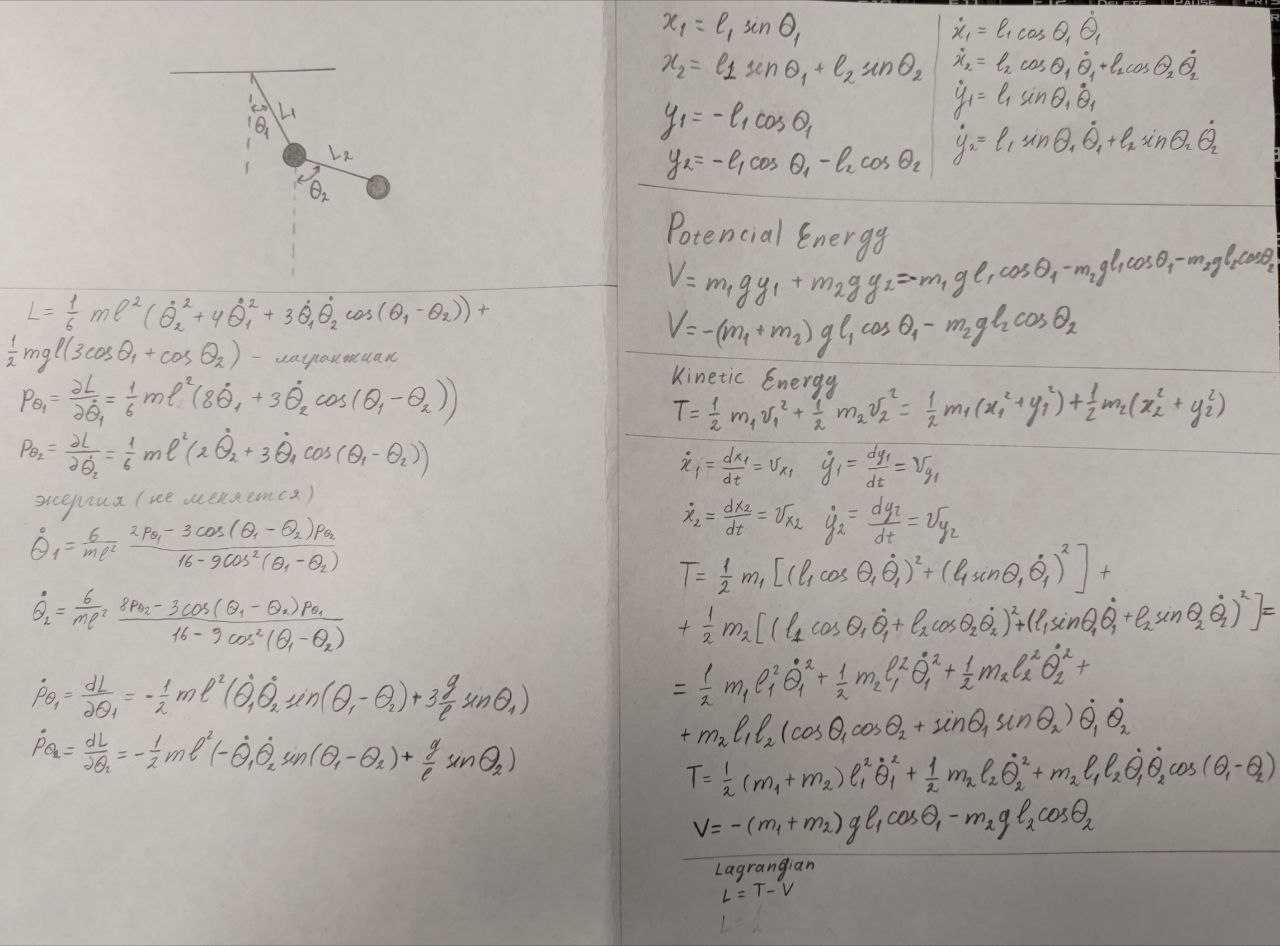 L₁
θ₁
L₂
θ₂
L = 1/6 ml²(θ̇₂² + 4θ̇₁² + 3θ̇₁θ̇₂ cos(θ₁ - θ₂)) +
1/2 mgl(3cosθ₁ + cosθ₂) - лагранжиан
pθ₁ = ∂L/∂θ̇₁ = 1/6 ml²(8θ̇₁ + 3θ̇₂ cos(θ₁ - θ₂))
pθ₂ = ∂L/∂θ̇₂ = 1/6 ml²(2θ̇₂ + 3θ̇₁ cos(θ₁ - θ₂))
энергия (не меняется)
θ̇₁ = 6/ml² (2pθ₁ - 3cos(θ₁ - θ₂)pθ₂)/(16 - 9cos²(θ₁ - θ₂))
θ̇₂ = 6/ml² (8pθ₂ - 3cos(θ₁ - θ₂)pθ₁)/(16 - 9cos²(θ₁ - θ₂))
ṗθ₁ = dL/∂θ₁ = -1/2 ml²(θ̇₁θ̇₂ sin(θ₁ - θ₂) + 3 g/l sinθ₁)
ṗθ₂ = dL/∂θ₂ = -1/2 ml²(-θ̇₁θ̇₂ sin(θ₁ - θ₂) + g/l sinθ₂)
x₁ = l₁ sin θ₁
x₂ = l₁ sinθ₁ + l₂ sinθ₂
y₁ = -l₁ cosθ₁
y₂ = -l₁ cos θ₁ - l₂ cos θ₂
ẋ₁ = l₁ cos θ₁ θ̇₁
ẋ₂ = l₂ cosθ₁ θ̇₁ + l₂ cosθ₂ θ̇₂
ẏ₁ = l₁ sinθ₁ θ̇₁
ẏ₂ = l₁ sinθ₁ θ̇₁ + l₂ sinθ₂ θ̇₂
Potencial Energy
V = m₁gy₁ + m₂gy₂ = -m₁gl₁cosθ₁ - m₂gl₁cosθ₁ - m₂gl₂cosθ₂
V = -(m₁ + m₂)gl₁ cosθ₁ - m₂gl₂ cosθ₂
Kinetic Energy
T = 1/2 m₁v₁² + 1/2 m₂v₂² = 1/2 m₁(ẋ₁² + ẏ₁²) + 1/2 m₂(ẋ₂² + ẏ₂²)
ẋ₁ = dx₁/dt = vx₁ ẏ₁ = dy₁/dt = vy₁
ẋ₂ = dx₂/dt = vx₂ ẏ₂ = dy₂/dt = vy₂
T = 1/2 m₁[(l₁ cos θ₁ θ̇₁)² + (l₁ sinθ₁ θ̇₁)²] +
+ 1/2 m₂[(l₁ cosθ₁θ̇₁ + l₂cosθ₂θ̇₂)² + (l₁sinθ₁θ̇₁ + l₂sinθ₂θ̇₂)²] =
= 1/2 m₁l₁²θ̇₁² + 1/2 m₂l₁²θ̇₁² + 1/2 m₂l₂²θ̇₂² +
+ m₂l₁l₂(cosθ₁cosθ₂ + sinθ₁ sinθ₂)θ̇₁ θ̇₂
T = 1/2 (m₁ + m₂)l₁²θ̇₁² + 1/2 m₂l₂θ̇₂² + m₂l₁l₂θ̇₁θ̇₂cos(θ₁ - θ₂)
V = -(m₁ + m₂)gl₁cosθ₁ - m₂gl₂cosθ₂
Lagrangian
L = T - V
L =